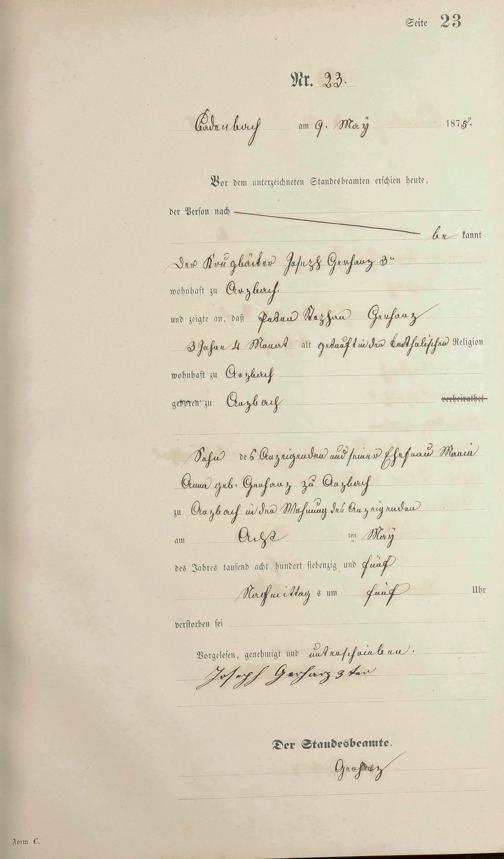 Seite 23
Nr. 23.
Cadenbach am 9. May 1875.
Vor dem unterzeichneten Standesbeamten erschien heute,
der Person nach
be kannt
Der Krugbäcker Joseph Gerharz 3r
wohnhaft zu Arzbach.
und zeigte an, daß Peter Stephan Gerharz
3 Jahre 4 Monat alt getauft in der katholischen Religion
wohnhaft zu Arzbach
geboren zu Arzbach verheirathet
Sohn des Anzeigenden und seiner Ehefrau Maria
Anna geb. Gerharz zu Arzbach
zu Arzbach in der Wohnung des Anzeigenden
am Acht ten May
des Jahres tausend acht hundert siebenzig und fünf
Nachmittag s um fünf Uhr
verstorben sei
Vorgelesen, genehmigt und unterschrieben.
Joseph Gerharz 3ter
Der Standesbeamte.
Gerharz
Form C.